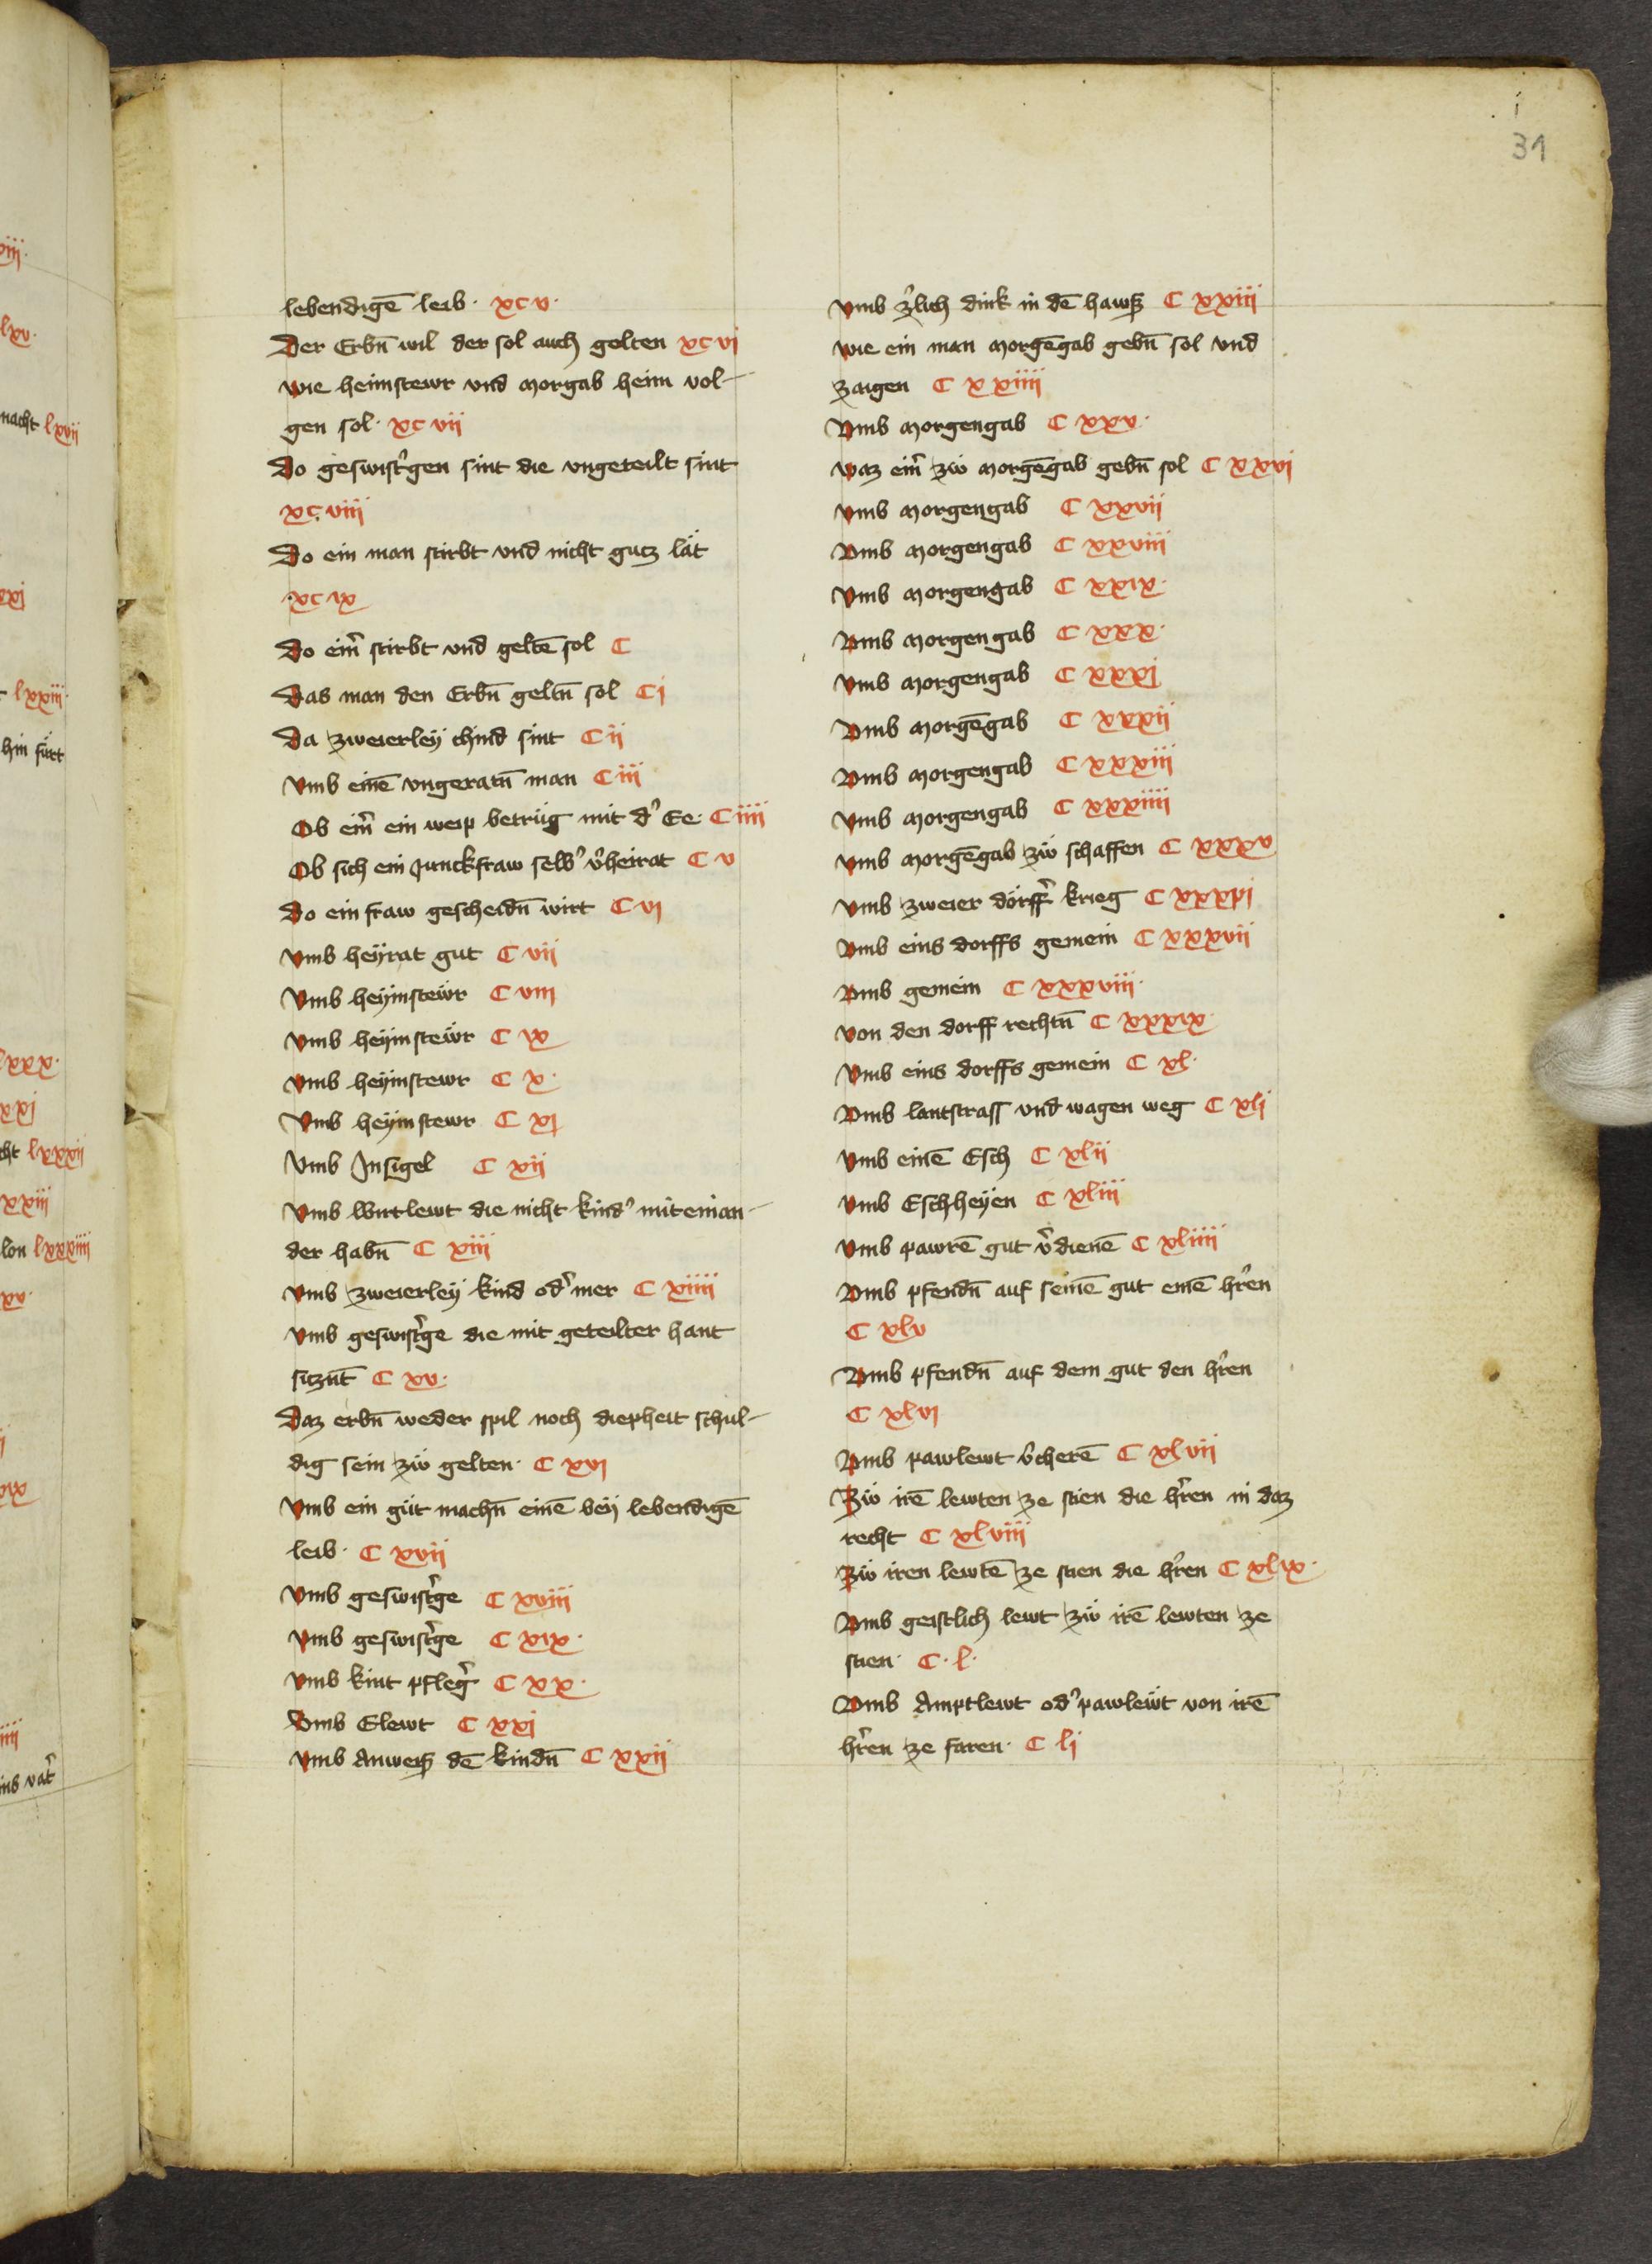 i
31
lebendigē leib · xcv ·
Der Erbn̄ wil der sol auch gelten xcvi
wie heimstewr vnd morgab heim vol-
gen sol · xcvii
Do geswist'gen sint die vngeteilt sint
xcviii
Do ein man stirbt vnd nicht gutz lät
· xcix
Do ein' stirbt vnd geltē sol C
Das man den Erbn̄ geltn̄ sol Ci
Da zweierleÿ chind sint Cii
Vmb einē vngeratn̄ man Ciii
Ob ein' ein weip betrüg mit d' Ee · Ciiii
Ob sich ein Junckfraw selb' v'heirat C v
Do ein fraw gescheidn̄ wirt C vi
Vmb heÿrat gut C vii
Vmb heÿmstewr C viii
Vmb heÿmstewr C ix
Vmb heÿmstewr C x ·
Vmb heÿmstewr C xi
Vmb Insigel C xii
Vmb Wirtlewt die nicht kind' miteinan-
der habn̄ C xiii
Vmb zweierleÿ kind od' mer C xiiii
Vmb geswist'ge die mit geteilter hant
sitzn̄t C xv ·
Daz erbn̄ weder spil noch diepheit schul-
dig sein zẘ gelten · C xvi
Vmb ein güt machn̄ einē beÿ lebendigē
leib · C xvii
Vmb geswist'ge C xviii
Vmb geswist'ge C xix ·
Vmb kint pfleg' C xx ·
Vmb Elewt C xxi
Vmb Anweis dē kindn̄ C xxii
Vmb z'lich dink in dē haws C xxiii
wie ein man morgēgab gebn̄ sol vnd
zaigen C xxiiii
Vmb morgengab C xxv ·
waz ein' zẘ morgēgab gebn̄ sol C xxvi
Vmb morgengab C xxvii
Vmb morgengab C xxviii
Vmb morgengab C xxix ·
Vmb morgengab C xxx ·
Vmb morgengab C xxxi
Vmb morgēgab C xxxii
Vmb morgengab C xxxiii
Vmb morgengab C xxxiiii
Vmb morgēgab zẘ schaffen C xxxv
Vmb zweier dörff' krieg C xxxvi
Vmb eins dorffs gemein C xxxvii
Vmb gemein C xxxviii ·
Von den dorff rechtn̄ C xxxix ·
Vmb eins dorffs gemein C xl ·
Vmb lantstrass vnd wagen weg C xli
Vmb einē Esch C xlii
Vmb Eschheÿen C xliii
Vmb pawrē gut v'dienē C xliiii
Vmb pfendn̄ auf seinē gut einē h'ren
C xlv
Vmb pfendn̄ auf dem gut den h'ren
C xlvi
Vmb pawlewt v'cherē C xlvii
Zẘ irē lewten ze stien die h'ren in daz
recht C xlviii
Zẘ iren lewtē ze stien die h'ren C xlix ·
Vmb geistlich lewt zẘ irē lewten ze
stien · C · l ·
Vmb Amptlewt od' pawlewt von irē
h'ren ze faren · C li